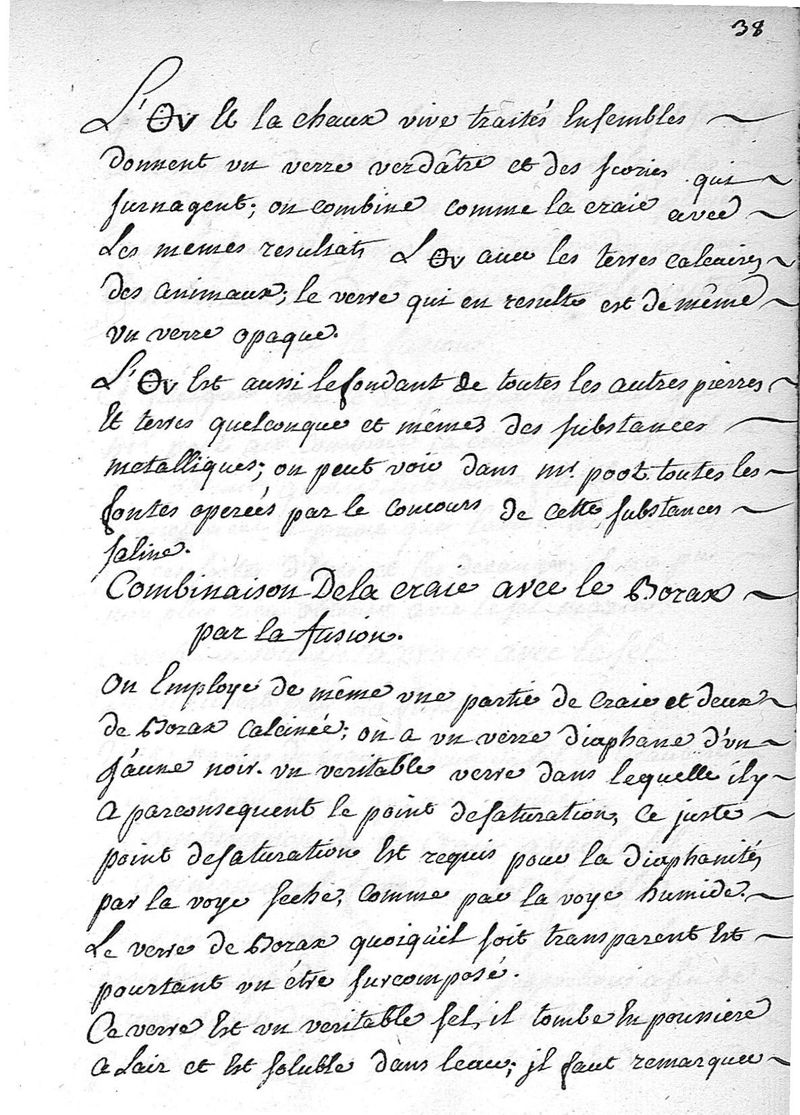 38
L'🜔v Et la chaux vive traités Ensembles
donnent un verre verdâtre et des scories qui
surnagent; on combine comme la craie avec
Les memes resultats L'🜔v avec les terres calcaires
des animaux; le verre qui en resulte est de même
un verre opaque.
L'🜔v Est aussi le fondant de toutes les autres pierres
Et terres quelconque et mêmes des substances
metalliques; on peut voir dans mr. poot toutes les
fontes operées par le concours de cette substances
saline.
Combinaison Dela craie avec le Borax
par la fusion.
On Employe de même une partie de Craie et deux
de Borax Calcinée; on a un verre diaphane d'un
jaune noir. un veritable verre dans lequelle il y
a parconsequent le point desaturation, Ce juste
point desaturation Est requis pour la diaphanités
par la voye seche, Comme par la voye humide.
Le verre de Borax quoiqu'il soit transparent Est
pourtant un être surcomposé.
Ce verre Est un veritable sel, il tombe En poussiere
a Lair et Est soluble dans leau; il faut remarquer